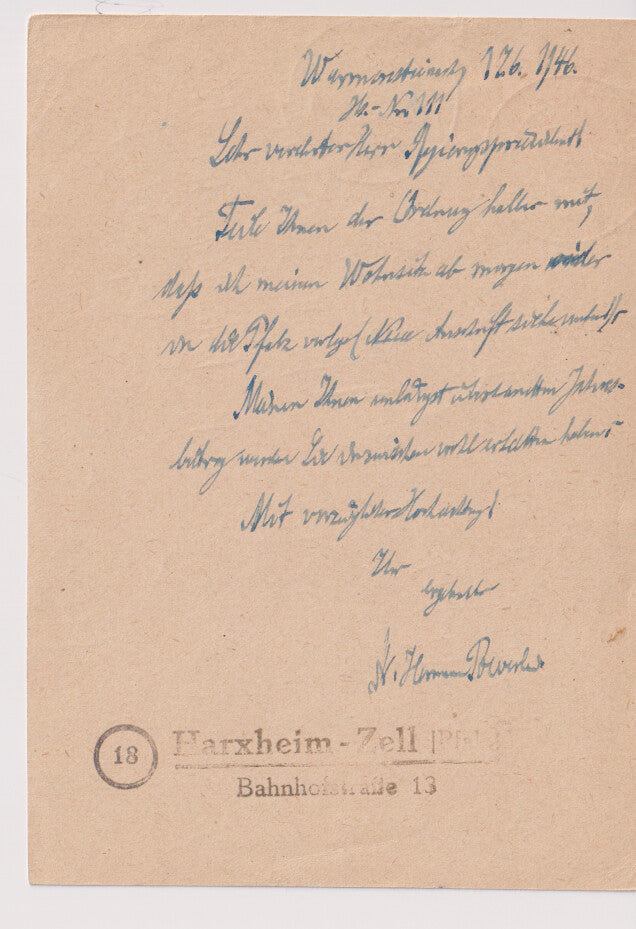 12.6. 1946.
Sehr verehrter Herr Regierungspräsident!
Teile Ihnen der Ordnung halber mit,
daß ich meinen Wohnsitz ab morgen wieder
in die Pfalz verlege (Neue Anschrift siehe
Meinen Ihnen übersandten Jahres-
beitrag werden Sie inzwischen wohl erhalten haben.
Mit vorzüglicher Hochachtung!
Ihr
ergebenster
Dr. Hermann
18 Harxheim-Zell (Pfalz)
Bahnhofstraße 13